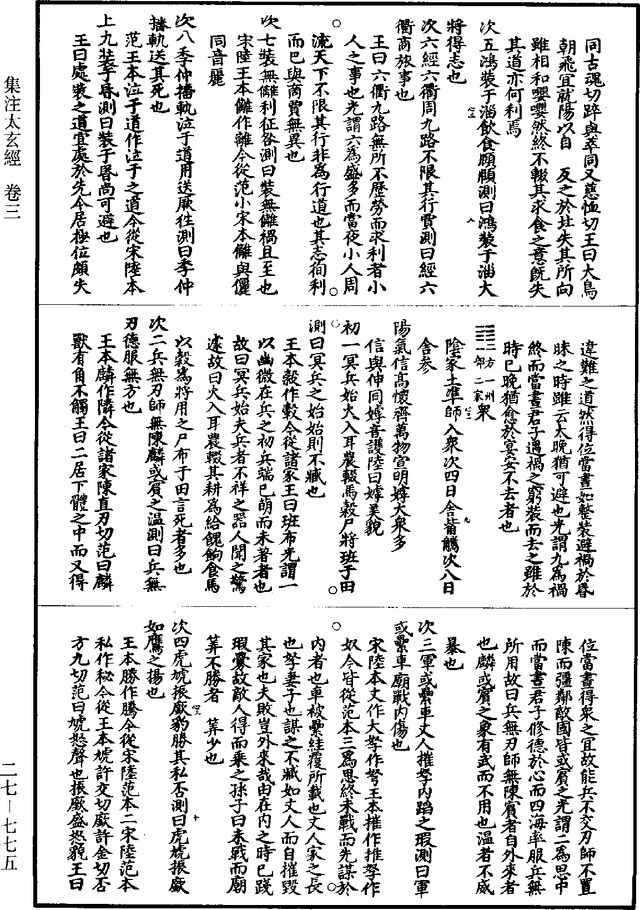 集注太玄經 卷三
二七—七七五
同古魂切踤與萃同又慈恤切王曰大鳥
朝飛宜就陽以自 反之於北失其所向
雖相和嚶嚶然終不輟其求食之意旣失
其道亦何利焉
次五鴻裝于淄飲食頤頤測曰鴻裝于淄大
將得志也
次六經六衢周九路不限其行賈測曰經六
衢商旅事也
王曰六衢九路無所不歷勞而求利者小
人之事也光謂六爲盛多而當夜小人周
流天下不限其行非爲行道也其志徇利
而已與商賈無異也
次七裝無儷利征咎測曰裝無儷禍且至也
宋陸王本儷作離今從范小宋本儷與儷
同音麗
次八季仲播軌泣于道用送厥往測曰季仲
播軌送其死也
范王本泣于道作泣于之道今從宋陸本
上九裝于昏測曰裝于昏尚可避也
王曰處裝之道宜處於先今居極位頗失
違難之道然得位當晝如整裝避禍於昬
昧之時雖云太晚猶可避也光謂九爲禍
終而當晝君子遇禍之窮裝而去之雖於
時已晚猶愈於宴安不去者也
𝌞三方二州二部二家衆
陰家土準師入衆次四日舍觜觿次八日
舍參
陽氣信高懷齊萬物宣明嫭大衆多
信與伸同嫭音護陸曰嫭美貌
初一冥兵始火入耳農輟馬穀尸將班于田
測曰冥兵之始始則不臧也
王本穀作轂今從諸家王曰班布光謂一
以幽微在兵之初兵端已萌而未著者也
故曰冥兵始夫兵者不祥之器人聞之驚
遽故曰火入耳農輟其耕爲給餽餉食馬
以穀爲將用之尸布于田言死者多也
次二兵無刃師無陳麟或賓之溫測曰兵無
刃德服無方也
王本麟作隣今從諸家陳直刃切范曰麟
獸有角不觸王曰二居下體之中而又得
位當晝得衆之宜故能兵不交刃師不置
陳而彊鄰敵國皆或賓之光謂二爲思中
而當晝君子修德於心而四海率服兵無
所用故曰兵無刃師無陳賓者自外來者
也麟或賓之象有武而不用也溫者不威
暴也
次三軍或纍車丈人摧孥內蹈之瑕測曰軍
或纍車廟戰內傷也
宋陸本丈作大孥作努王本摧作推孥作
奴今皆從范本三爲思終未戰而先謀於
內者也車被纍絓覆所載也丈人家之長
也孥妻子也謀之不臧如丈人而自摧毀
其家也夫敗豈外來哉由在內之時已踐
瑕釁故敵人得而乘之孫子曰未戰而廟
筭不勝者 筭少也
次四虎虓振廞豹勝其私否測曰虎虓振廞
如鷹之揚也
王本勝作騰今從宋陸范本二宋陸范本
私作秘今從王本虓許交切廞許金切否
方九切范曰虓怒聲也振廞盛怒貌王曰